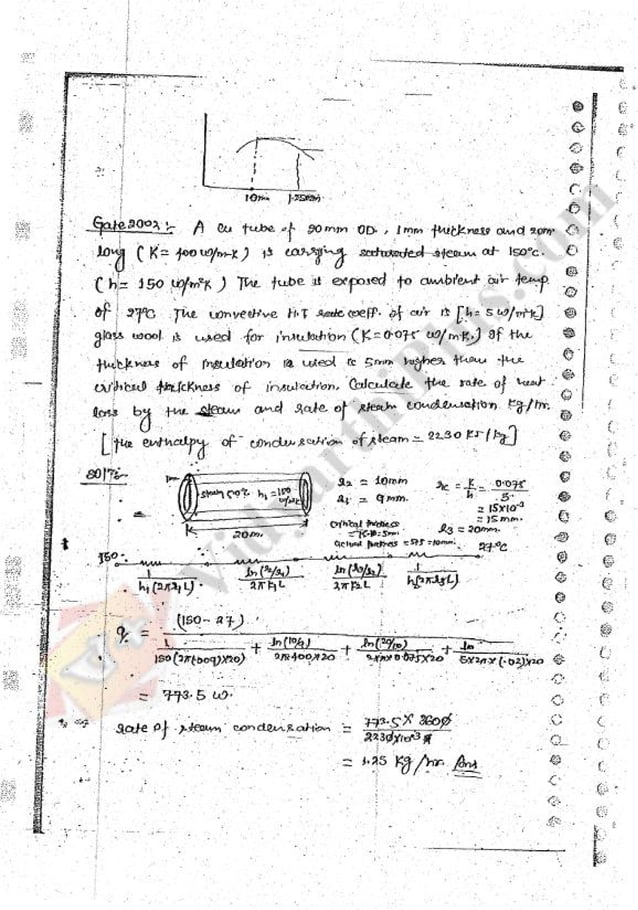 10mm 1.25cm
Gate 2002:- A Cu tube of 20mm OD, 1mm thickness and 20m
long (K= 400 w/m-k) is carrying saturated steam at 150°C.
(h= 150 w/m²k) The tube is exposed to ambient air temp.
of 27°C The convective H.T rate coeff. of air is [h= 5 w/m²k]
glass wool is used for insulation (K=0.075 w/mk.) If the
thickness of insulation is used is 5mm higher than the
critical thickness of insulation. Calculate the rate of heat
loss by the steam and rate of steam condensation kg/hr.
[the enthalpy of condensation of steam = 2230 KJ/kg]
Sol?:-
steam 150°C h₁ = 150 w/m²k
20m.
r₂ = 10mm
r₁ = 9mm.
rc = K/h = 0.075/5
= 15×10⁻³
= 15mm.
critical thickness
= 15-10=5mm
actual thickness = 5+5=10mm.
r₃ = 20mm.
150. 27°C
1/h₁(2πr₁L) ln(r₂/r₁)/2πK₁L ln(r₃/r₂)/2πK₂L 1/h₂(2πr₃L)
q = (150-27)/1/150(2π(.009)×20) + ln(10/9)/2π×400×20 + ln(20/10)/2×π×0.075×20 + 1/5×2π×(.02)×20
= 773.5 w.
rate of steam condensation = 773.5 × 3600/2230×10³
= 1.25 kg/hr. Ans
VidyarthiPlus.com
V+